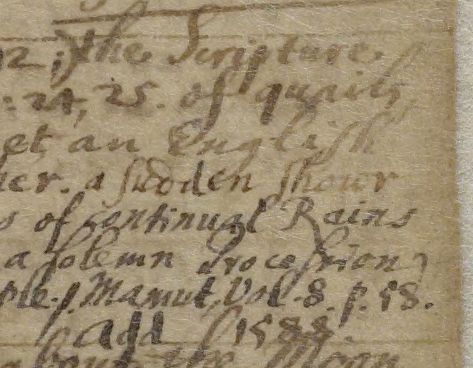 12. the Scripture
: 24, 25. of quails,
et an English
her. a sudden shower
s of continual Rains
a solemn Procession
ple. Mamut, Vol. 8. p. 58.
add 1588.
about the Moon